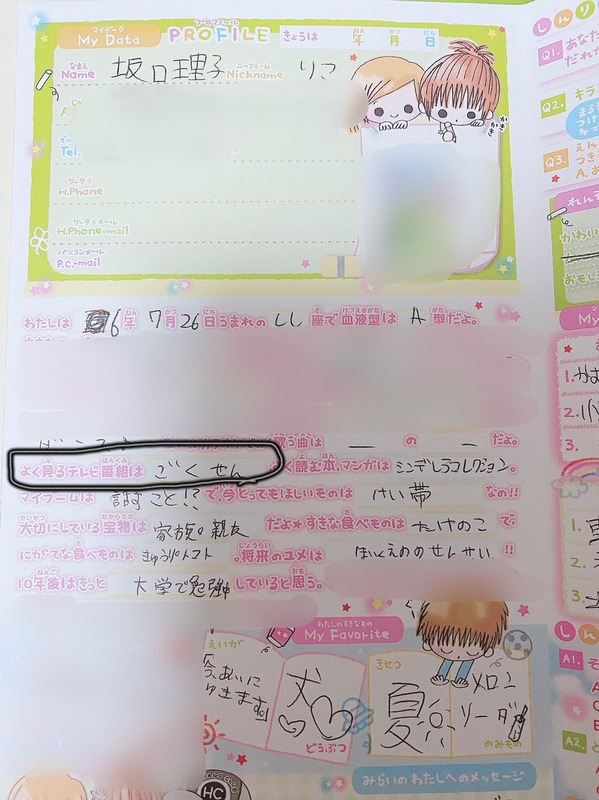 マイデータ My Data プロフィール PROFILE きょうは 年 月 日
なまえ Name 坂口理子 ニックネーム Nickname りこ
かきかき
でん Tel.
ケータイ H.Phone
ケータイメール H.Phone-mail
パソコンメール P.C.-mail
わたしは 6年 7月26日うまれの しし 座で血液型は A 型だよ。
歌う曲は ー の ー だよ。
よく見るテレビ番組は ごくせん よく読む本、マンガは シンデレラコレクション。
マイブームは 話すこと!? で、今とってもほしいものは けい帯 なの!!
大切にしている宝物は 家族。親友 だよ。すきな食べものは たけのこ で、
にがてな食べものは きゅうり。トマト 。将来のユメは ほいくえんのせんせい。 !!
10年後はきっと 大学で勉強 していると思う。
わたしのすきなもの My Favorite
えいが 今、あいにゆきます
犬 どうぶつ
きせつ 夏
メロンソーダ のみもの
みらいのわたしへのメッセージ
HC
しんり
Q1. あなた
だれか
Q2. キラ
まる
つけ
Q3. えん
つき
A. あ
れん
かわい
おもし
My
1.
2.
3.
1.
2.
3.
しん
A1. そ
A2. と